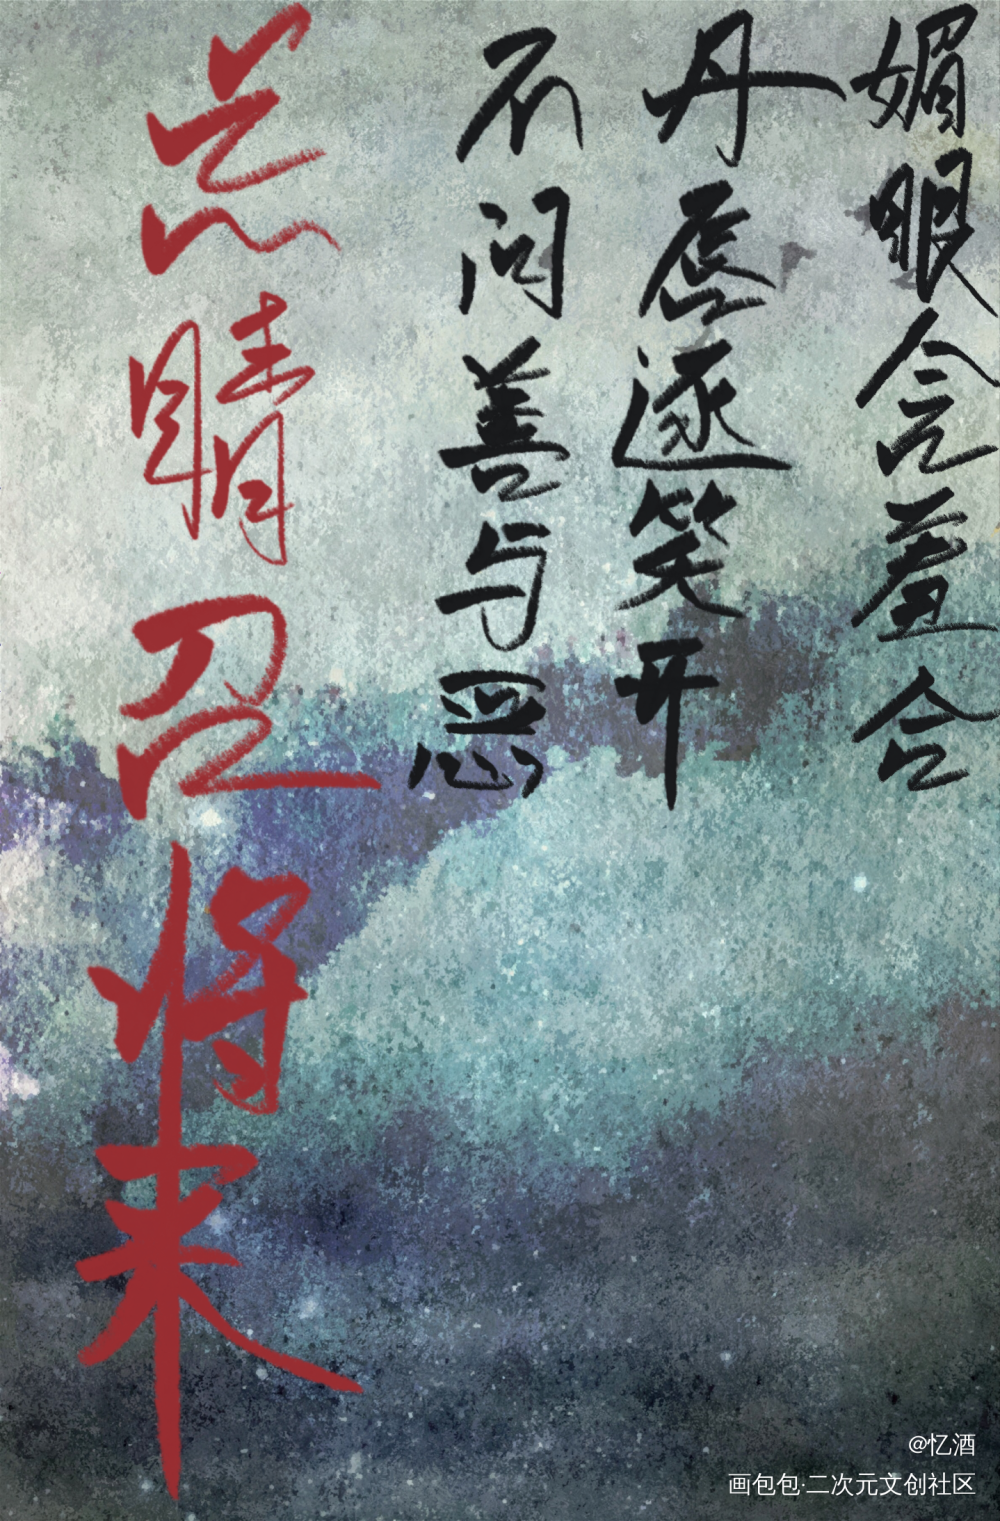 媚眼含羞合
丹唇逐笑开
不问善与恶
点睛召将来
@忆酒
画包包·二次元文创社区